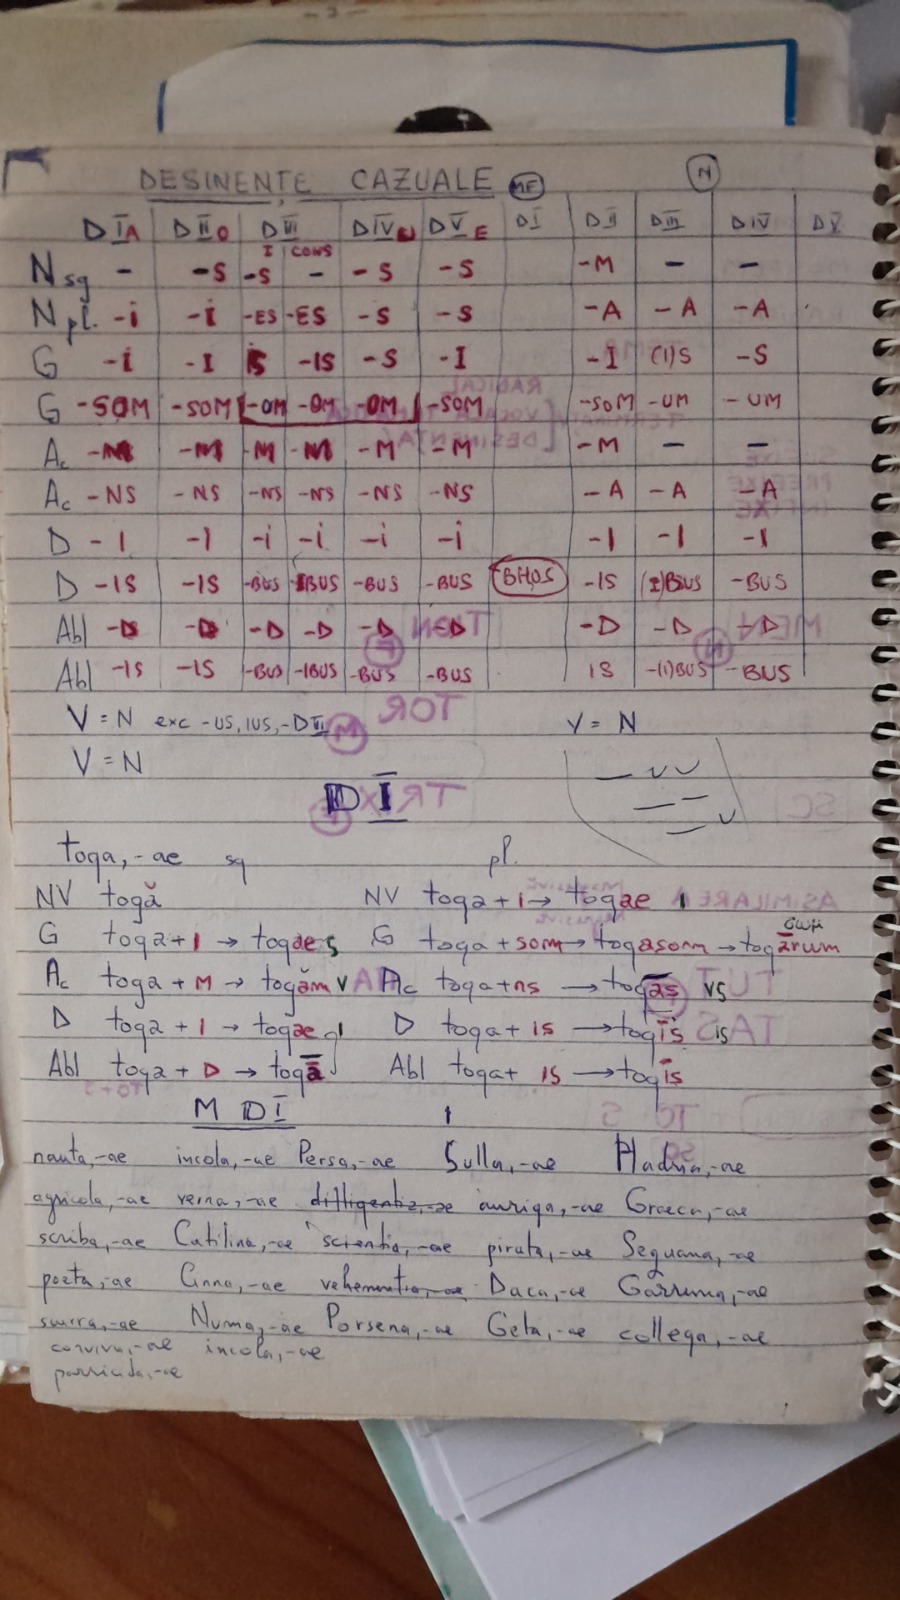 - 3 -
DESINENȚE CAZUALE MF N
D I A D II O D III D IV U D V E D I D II D III D IV D V
I CONS
N sg - -S -S - -S -S -M - -
N pl. -i -I -ES -ES -S -S -A -A -A
G -i -I IS -IS -S -I -I (I)S -S
G -SOM -SOM -OM -OM -OM -SOM -SOM -UM -UM
Ac -M -M -M -M -M -M -M - -
Ac -NS -NS -NS -NS -NS -NS -A -A -A
D -I -I -i -i -i -i -I -I -I
D -IS -IS -BUS -IBUS -BUS -BUS BHOS -IS (I)BUS -BUS
Abl -D -D -D -D -D -D -D -D -D
Abl -IS -IS -BUS -IBUS -BUS -BUS IS -(I)BUS -BUS
V = N exc -US, IUS, -D II V = N
V = N
D I
toga, -ae sg pl.
NV togă NV toga + i → togae
G toga + I → togae G toga + som → togasom → togārum
Ac toga + M → togăm Ac toga + ns → togās
D toga + I → togae D toga + is → togīs
Abl toga + D → togā Abl toga + IS → togīs
M D I
nauta, -ae incola, -ae Persa, -ae Sulla, -ae Hadria, -ae
agricola, -ae verna, -ae diligentia, -ae auriga, -ae Graeca, -ae
scriba, -ae Catilina, -ae scientia, -ae pirata, -ae Sequana, -ae
poeta, -ae Cinna, -ae vehementia, -ae Daca, -ae Garumna, -ae
scurra, -ae Numa, -ae Porsena, -ae Geta, -ae collega, -ae
conviva, -ae incola, -ae
parricida, -ae